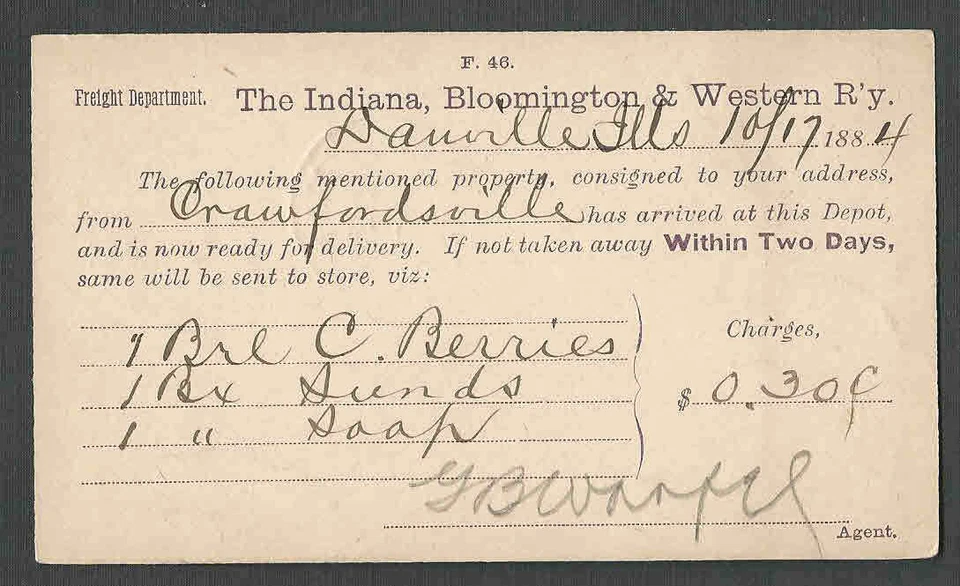 F. 46.
Freight Department. The Indiana, Bloomington & Western R'y.
Danville Ills 10/17 1884
The following mentioned property, consigned to your address,
from Crawfordsville has arrived at this Depot,
and is now ready for delivery. If not taken away Within Two Days,
same will be sent to store, viz:
1 Brl C. Berries
Charges,
1 Bx Sunds
$ 0.30¢
1 " Soap
G B
Agent.